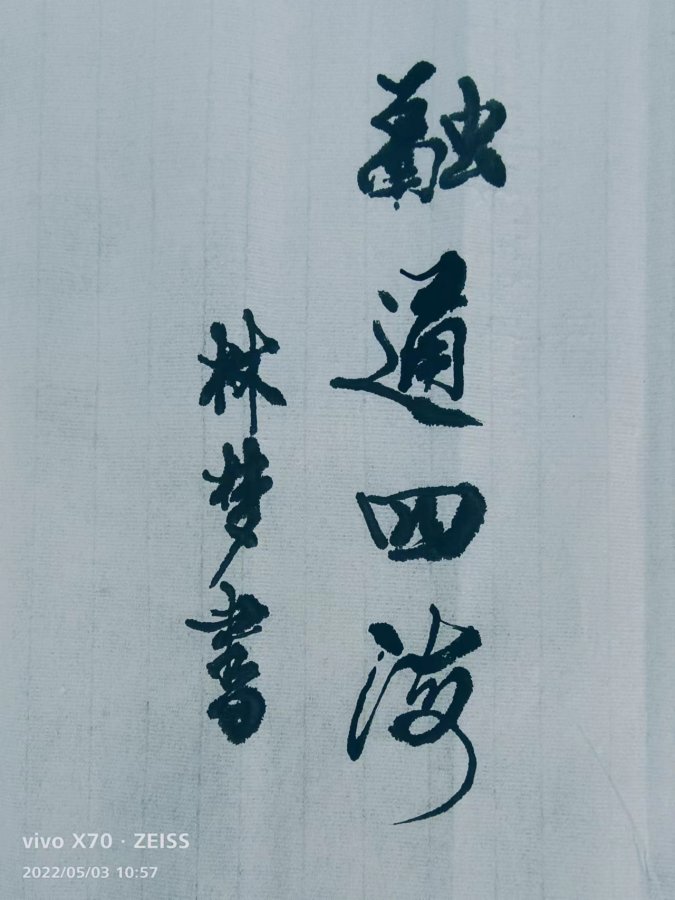 融通四海
林梦書
vivo X70 · ZEISS
2022/05/03 10:57